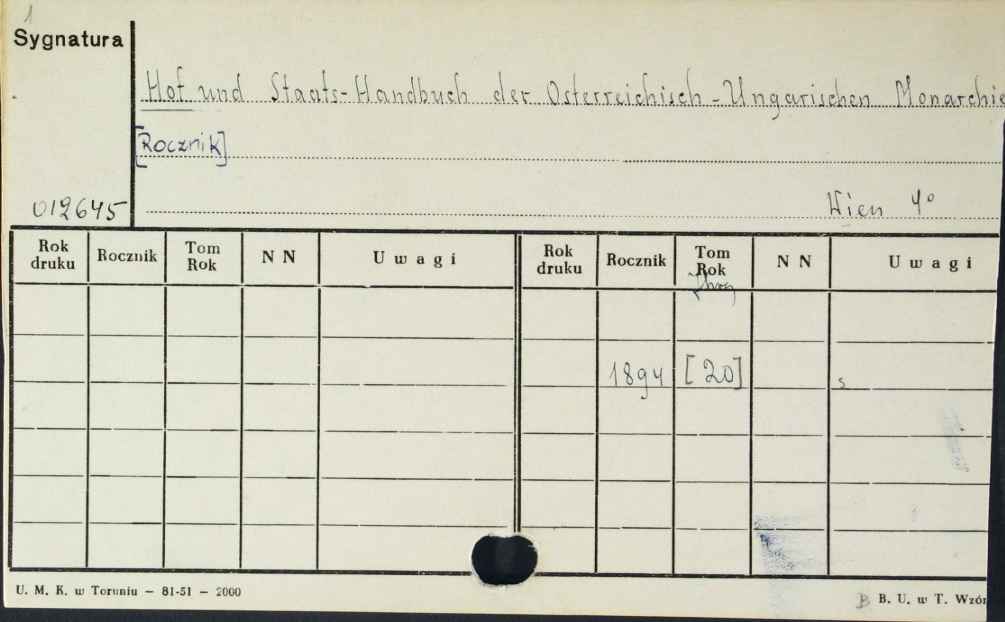 1
Sygnatura
Hof und Staats-Handbuch der Osterreichisch-Ungarischen Monarchie
[Rocznik]
012645
Wien 4°
Rok druku Rocznik Tom Rok NN Uwagi Rok druku Rocznik Tom Rok NN Uwagi
1894 [20] s
U. M. K. w Toruniu – 81-51 – 2000
B B. U. w T. Wzór